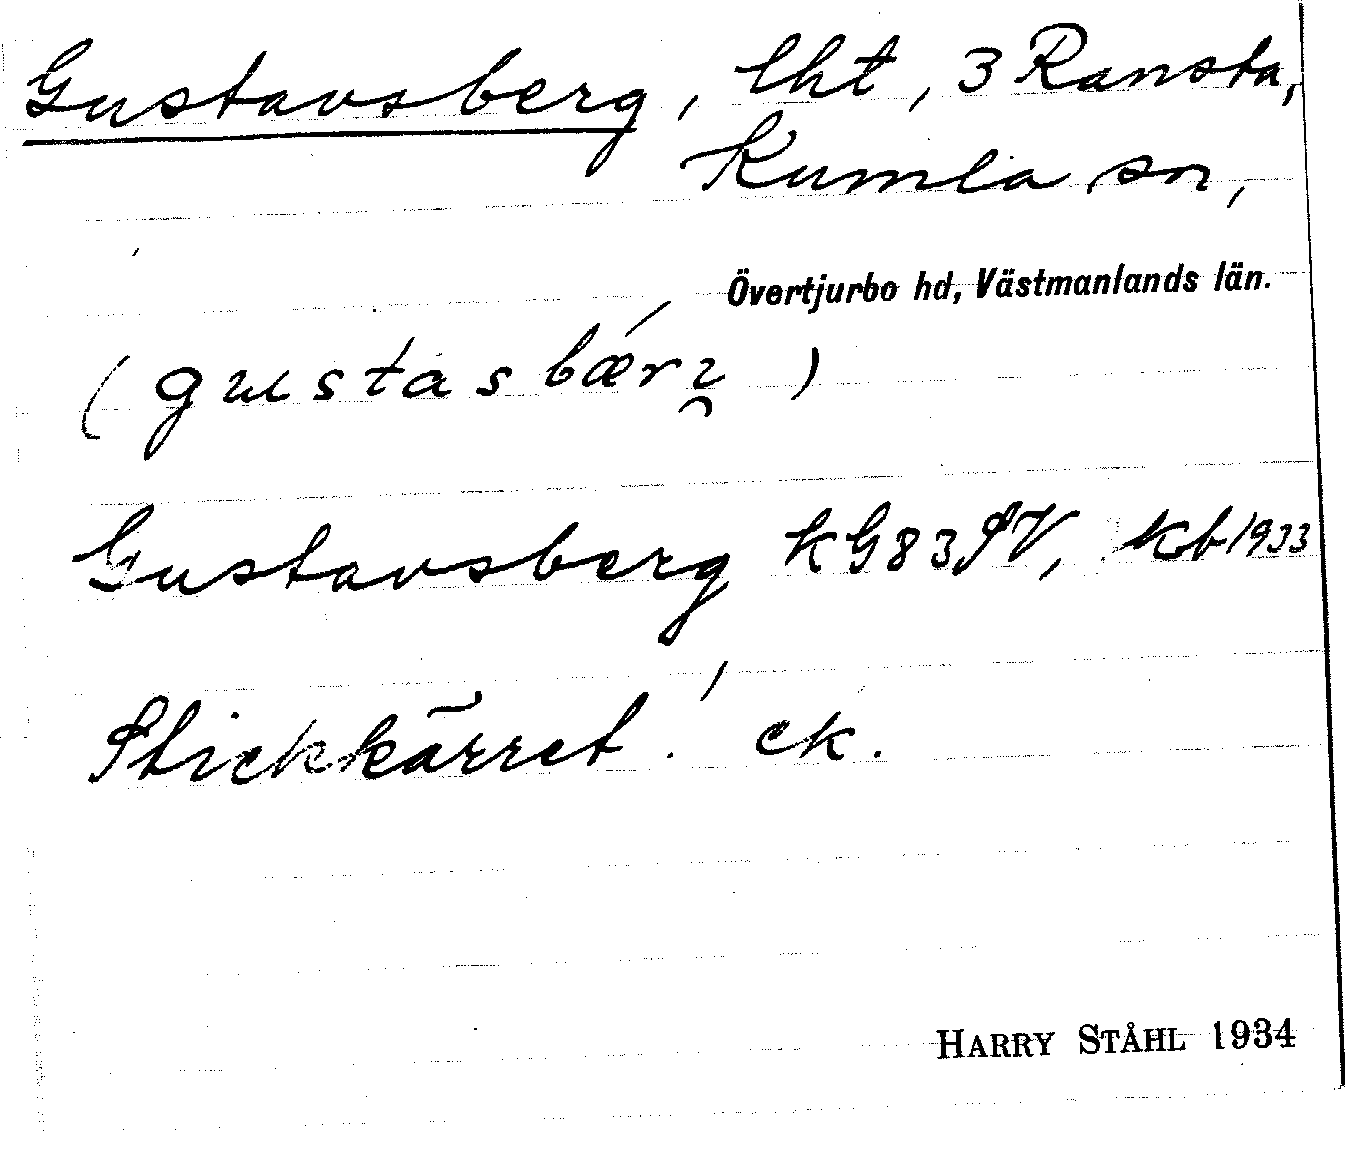 Gustavsberg, lht, 3 Ransta,
Kumla sn,
Övertjurbo hd, Västmanlands län.
(gustasbærj)
Gustavsberg kG83SV, kb 1933
Stickkärret. ek.
HARRY STÅHL 1934